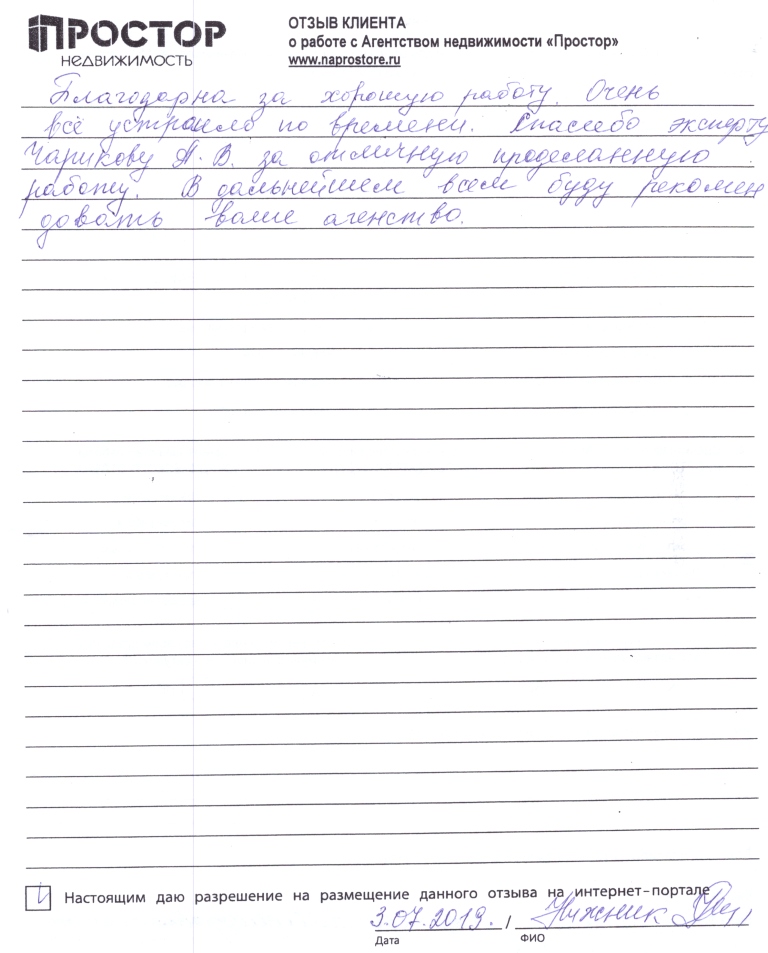 ПРОСТОР
НЕДВИЖИМОСТЬ
ОТЗЫВ КЛИЕНТА
о работе с Агентством недвижимости «Простор»
www.naprostore.ru
Благодарна за хорошую работу. Очень
всё устроило по времени. Спасибо эксперту
Чарикову А. В. за отличную проделанную
работу. В дальнейшем всем буду рекомен
довать ваше агенство.
Настоящим даю разрешение на размещение данного отзыва на интернет-портале
3.07.2019. / Нижник
Дата ФИО